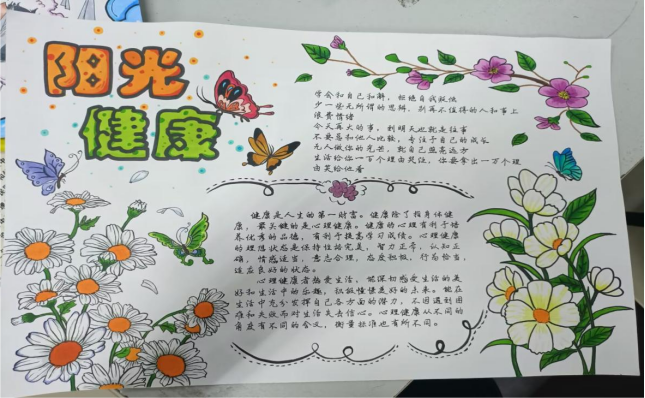 阳光
健康
学会和自己和解，拒绝自我敌视
少一些无所谓的思绪，别再不值得的人和事上
浪费情绪
今天再大的事，到明天也就是往事
不要总和他人比较，专注于自己的成长
无人做你的光芒，就自己照亮远方
生活给你一百个理由哭泣，你要拿出一万个理
由笑给他看
健康是人生的第一财富。健康除了指身体健
康，最关键的是心理健康。健康的心理有利于培
养优秀的品德，有利于提高学习成绩。心理健康
的理想状态是保持性格完美，智力正常，认知正
确，情感适当，意志合理，态度积极，行为恰当，
适应良好的状态。
心理健康者热爱生活，能深切感受生活的美
好和生活中的乐趣，积极憧憬美好的未来。能在
生活中充分发挥自己各方面的潜力，不因遇到困
难和失败而对生活失去信心。心理健康从不同的
角度有不同的含义，衡量标准也有所不同。